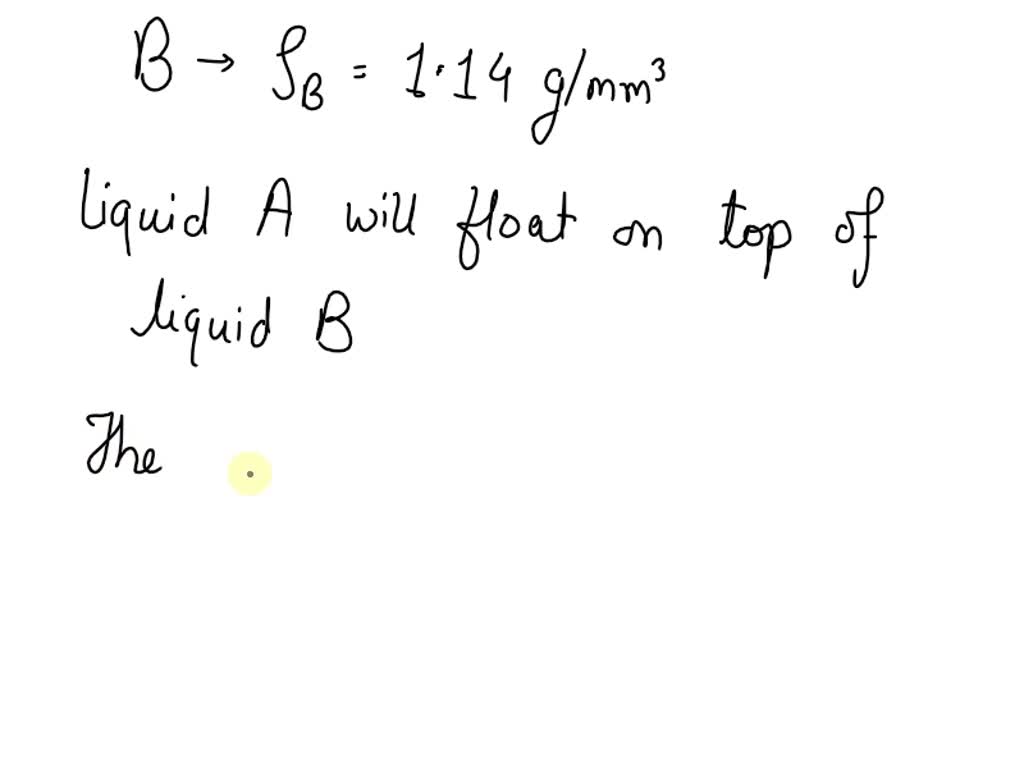 B → ρB = 1.14 g/mm³
liquid A will float on top of
liquid B
The